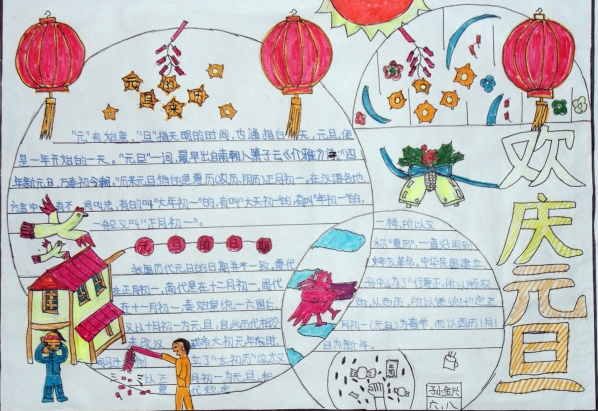 欢庆元旦
元旦含义
"元"有始意，"旦"指天明的时间，也通指白天，元旦，便
是一年开始的一天。"元旦"一词，最早出自南朝人萧子云《介雅》诗："四
年新元旦，万寿初今朝。"历来元旦指的是夏历(农历、阴历)正月初一。在汉语各地
方言中有不同叫法，有的叫"大年初一"的，有叫"大天初一"的，有叫"年初一"的，
一般又叫"正月初一"。
元旦的日期
我国历代元旦的日期并不一致。夏代
在正月初一，商代是在十二月初一，周代
在十一月初一，秦始皇统一六国后，
又以十月初一为元旦，自此历代相沿
未改
汉武帝太初元年
了"太初历"这才又
以正月初一为元旦，和
一样，所以又
称"夏历"，一直沿用到
辛亥革命。中华民国建立
孙中山为了"行夏正，所以顺农
时，从西历，所以便统计"定正
月初一(元旦)为春节，而以西历1月1
日为新年。
孙金兴
六、八